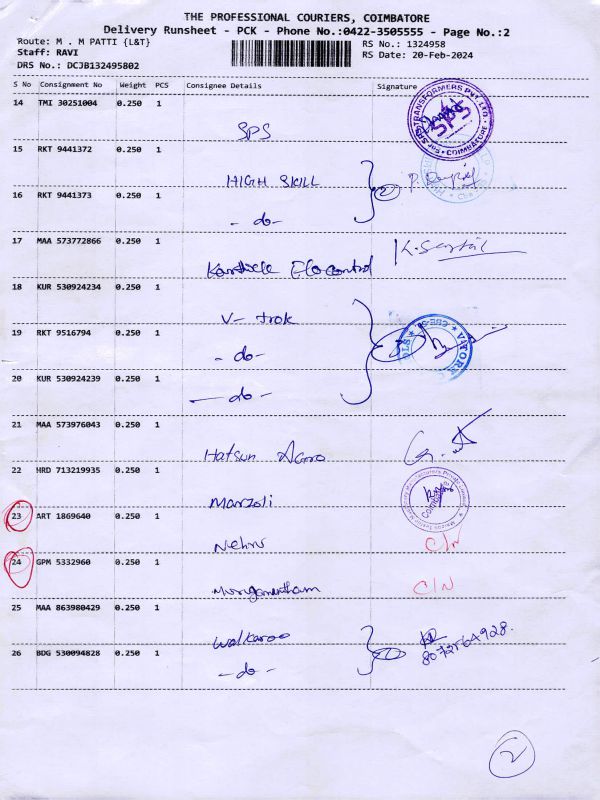 THE PROFESSIONAL COURIERS, COIMBATORE
Delivery Runsheet - PCK - Phone No.:0422-3505555 - Page No.:2
Route: M . M PATTI {L&T}
RS No.: 1324958
Staff: RAVI
RS Date: 20-Feb-2024
DRS No.: DCJB132495802
S No Consignment No Weight PCS Consignee Details Signature
14 TMI 30251004 0.250 1
SPS
SPS
COIMBATORE
15 RKT 9441372 0.250 1
HIGH SKILL
2
16 RKT 9441373 0.250 1
- do -
17 MAA 573772866 0.250 1
18 KUR 530924234 0.250 1
V- trok
19 RKT 9516794 0.250 1
- do -
3
20 KUR 530924239 0.250 1
- do -
21 MAA 573976043 0.250 1
Hatsun Agro
22 HRD 713219935 0.250 1
Marzoli
23 ART 1869640 0.250 1
Nehru
C/N
24 GPM 5332960 0.250 1
C/N
25 MAA 863980429 0.250 1
Walkaroo
26 BDG 530094828 0.250 1
- do -
2